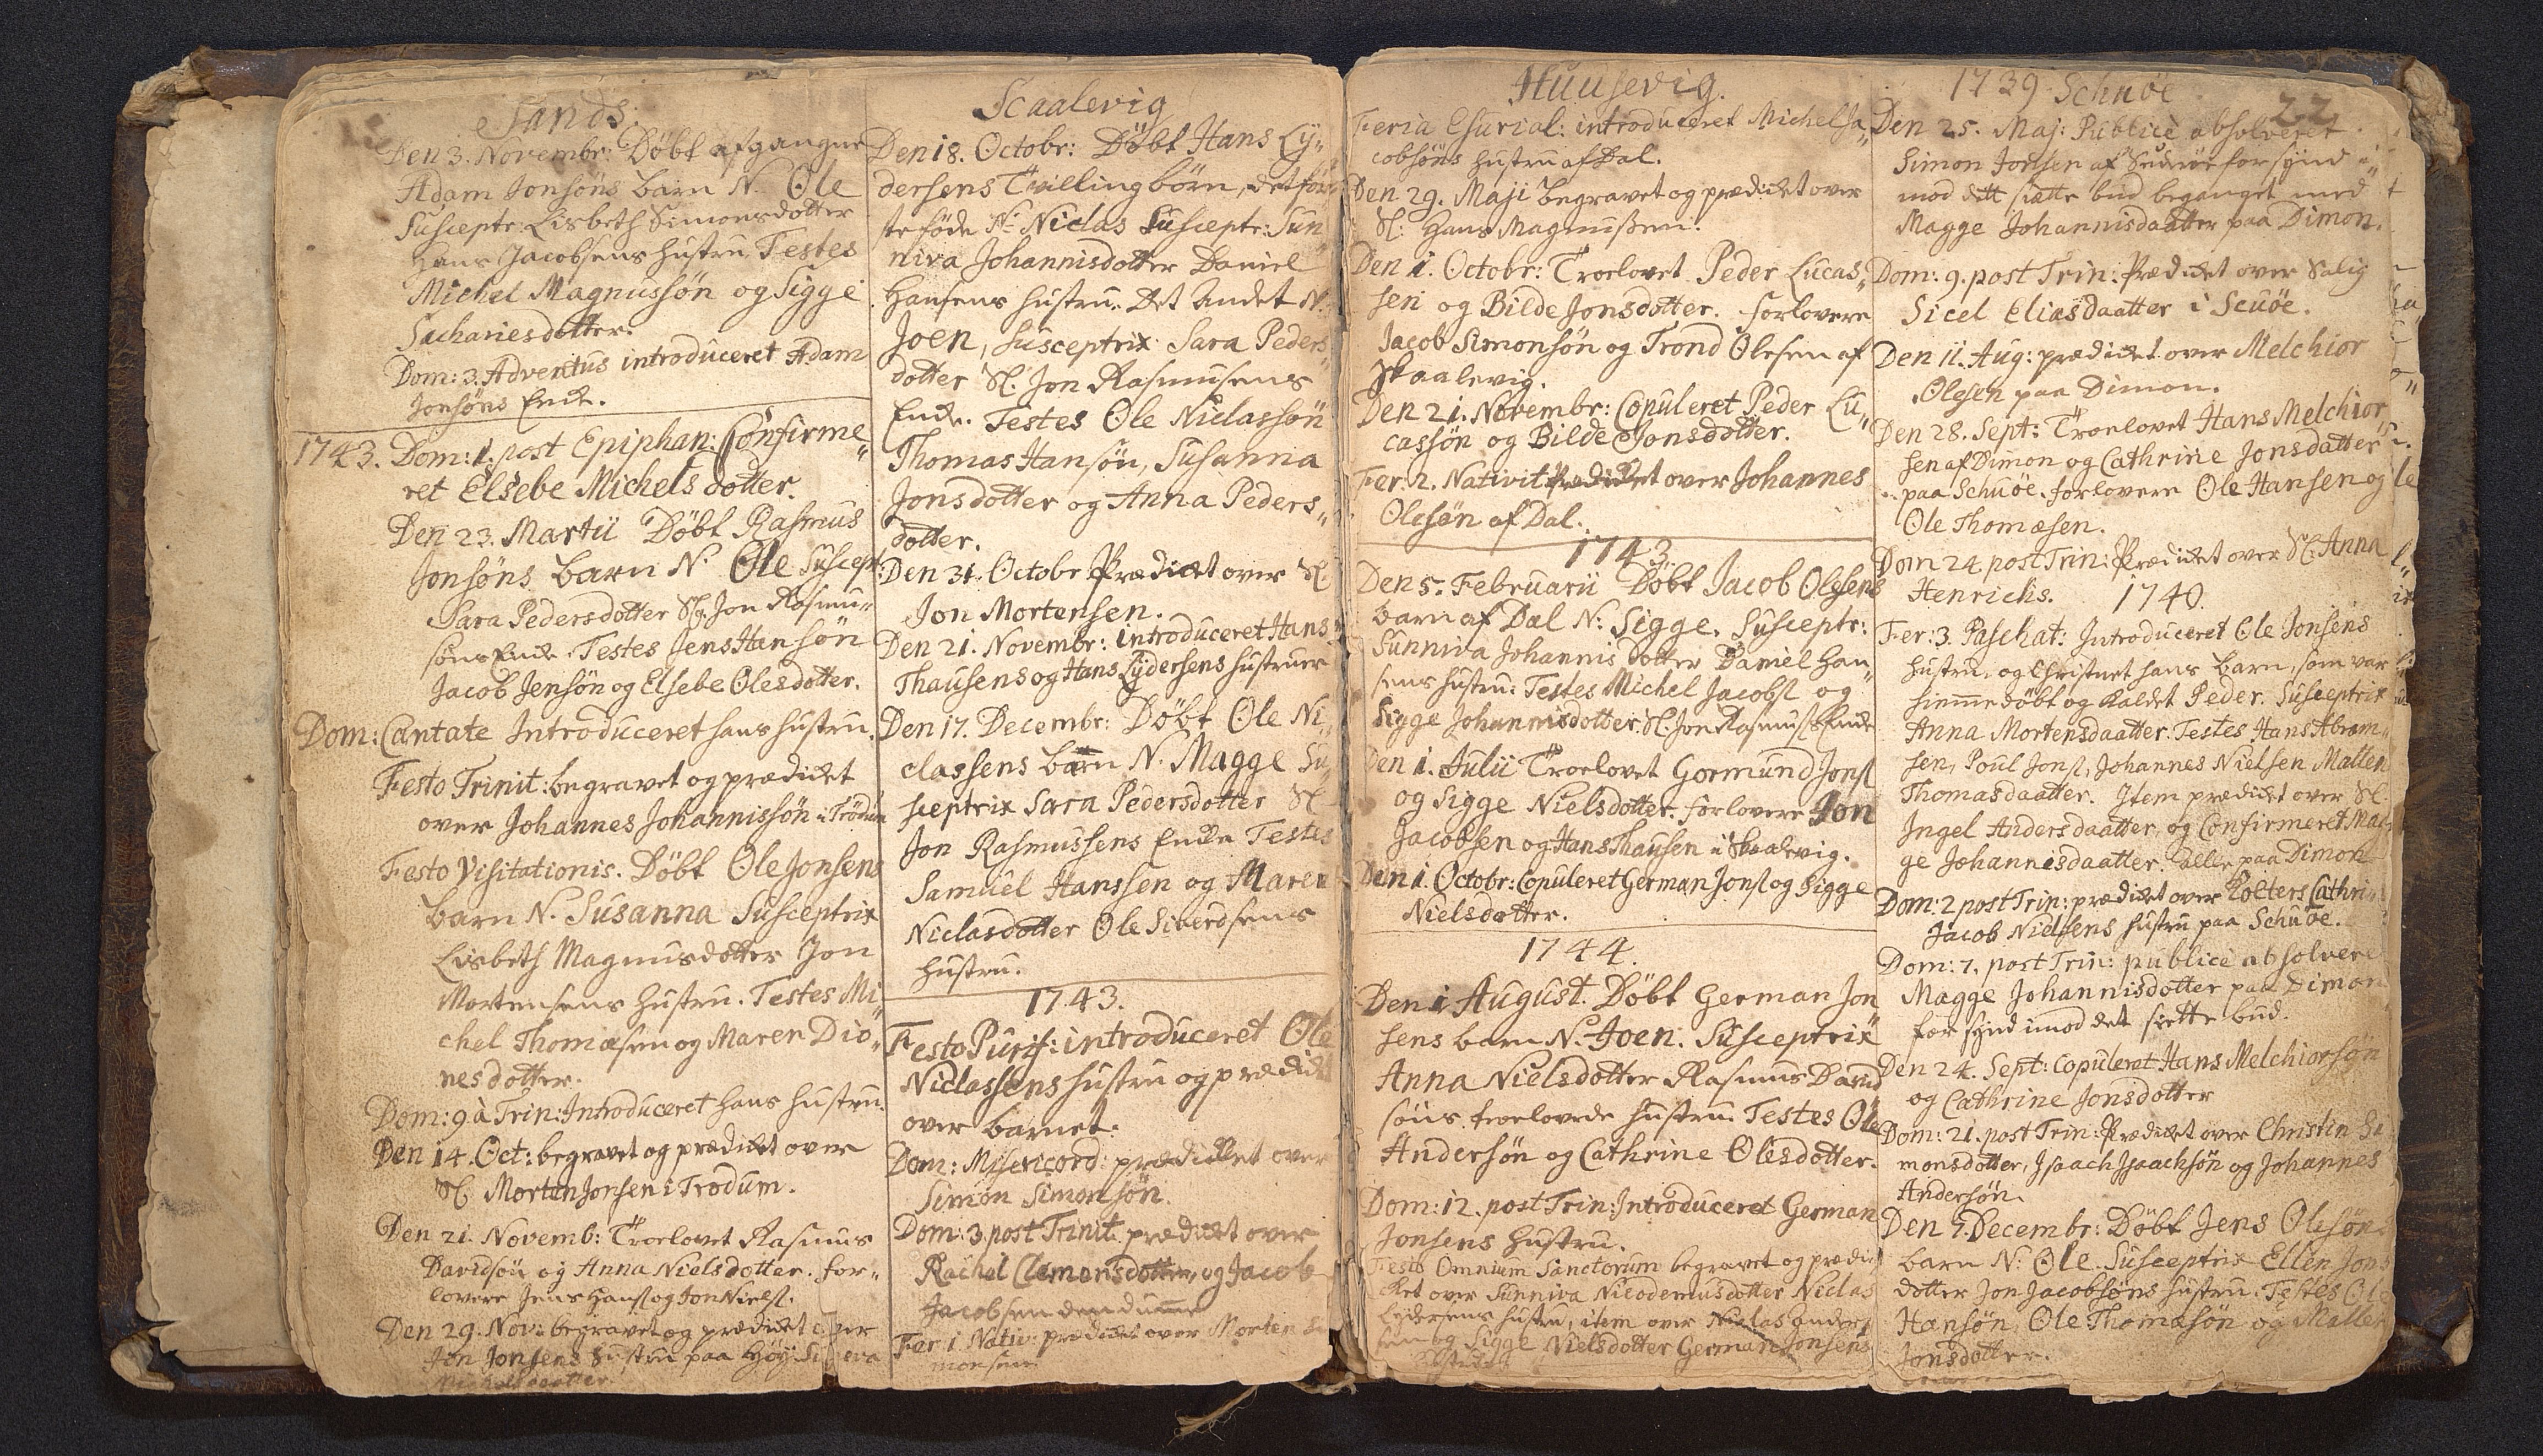 Sands.
Den 3. Novembr: Döbt afgangne
Adam Jonsöns barn N. Ole
Susceptr: Lisbeth Simonsdotter
Hans Jacobsens hustru, Testes
Michel Magnussön og Sigge
Sachariesdotter.
Dom: 3. Adventus introduceret Adam
Jonsöns Enke.
1743. Dom: 1. post Epiphan: Confirme„
ret Elsebe Michels dotter.
Den 23. Martii Döbt Rasmus
Jonsöns barn N. Ole Suscept:
Sara Pedersdotter Sl. Jon Rasmu„
söns Enke. Testes Jens Hansön
Jacob Jensön og Elsebe Olesdotter.
Dom: Cantate Introduceret hans hustru.
Festo Trinit: begravet og prædicket
over Johannes Johannissön i Trödum
Festo Visitationis. Döbt Ole Jonsens
barn N. Susanna Susceptrix
Lisbeth Magnusdotter Jon
Mortensens hustru. Testes Mi„
chel Thomæsen og Maren Dio„
nesdotter.
Dom: 9 à Trin: Introduceret hans hustru.
Den 14. Oct: begravet og prædicket over
Sl. Morten Jonsen i Trödum.
Den 21. Novemb: Troelovet Rasmus
Davidsön og Anna Nielsdotter. for„
lovere Jens Hansl og Jon Nielsl.
Den 29. Nov: begravet og prædicket over
Jon Jonsens hustru paa Høy
Michelsdaatter.
Scaalevig
Den 18. Octobr: Döbt Hans Ly„
dersens Tvilling börn, det för„
ste föde N. Niclas Susceptr: Sun„
niva Johannisdotter Daniel
Hansens hustru. Det Andet N.
Joen, Susceptrix Sara Peders„
dotter Sl. Jon Rasmusens
Enke. Testes Ole Niclassön
Thomas Hansön, Susanna
Jonsdotter og Anna Peders„
dotter.
Den 31. Octobr. Prædicket over Sl.
Jon Mortensen.
Den 21. Novembr: introduceret Hans
Thausens og Hans Lydersens hustruer
Den 17. Decembr: Döbt Ole Ni„
classens barn N. Magge Su„
sceptrix Sara Pedersdotter Sl
Jon Rasmussens Enke Testes
Samuel Hanssen og Maren
Niclasdotter Ole Siverdsens
hustru.
1743.
Festo Purif: introduceret Ole
Niclassens hustru og prædicket
over barnet.
Dom: Misericord: prædicket over
Simon Simonsön.
Dom: 3. post Trinit. prædicket over
Rachel Clemensdotter, og Jacob
Jacobsen den dumme
Fer 1 Nativ: prædicket over Morten Si
monsen
Huusevig.
Feria Esurial: introduceret Michel Ja„
cobsöns hustru af Dal.
Den 29. Maji begravet og prædicket over
Sl: Hans Magnussen.
Den 1. Octobr: Troelovet Peder Lucas„
sen og Bilde Jonsdotter. forlovere
Jacob Simonsön og Trond Olesen af
Skaalevig.
Den 21. Novembr: Copuleret Peder Lu„
cassön og Bilde Jonsdotter.
Fer. 2. Nativit Prædicket over Johannes
Olesön af Dal.
1743.
Den 5. Februarii Döbt Jacob Olesens
barn af Dal N: Sigge. Susceptr:
Sunniva Johannis dotter Daniel Han„
sens hustru: Testes Michel Jacobsl og
Sigge Johannisdotter. Sl. Jon Rasmusl. Enke
Den 1. Julii Troelovet Gormund Jonsl
og Sigge Nielsdotter. forlovere Jon
Jacobsen og Hans Thausen i Skaalevig.
Den 1. Octobr: Copuleret German Jonsl og Sigge
Nielsdotter.
1744.
Den 1. August. Döbt German Jon
sens barn N. Joen. Susceptrix
Anna Nielsdotter Rasmus David
söns troelovede hustru. Testes Ole
Andersön og Cathrine Olesdotter.
Dom: 12. post Trin: Introduceret German
Jonsens hustru.
Festo Omnium Sanctorum begravet og prædic
ket over Sunniva Nicodemusdotter Niclas
Lydersens hustru, item over Niclas Anders
sen og Sigge Nielsdotter German Jonsens
hustru.
1739 Schuöe 22
Den 25. Maj: Publicè absolveret
Simon Jonsen af Suderöe for synd i„
mod dett siætte bud beganget med
Magge Johannisdaatter paa Dimon.
Dom: 9. post Trin: Prædicket over Salig
Sicel Eliasdaatter i Scuöe.
Den 11. Aug: prædicket over Melchior
Olesen paa Dimon.
Den 28. Sept: Troelovet Hans Melchior
sen af Dimon og Cathrine Jonsdatter
paa Schuöe. forlovere Ole Hansen og
Ole Thomæsen.
Dom 24 post Trin: Prædicket over Sl. Anna
Henrichs.
1740.
Fer: 3. Paschat: Introduceret Ole Jonsens
hustru, og Christnet hans barn, som var
hiemmedöbt og kaldet Peder. Susceptrix
Anna Mortensdaatter. Testes Hans Abram„
sen, Poul Jonsl, Johannes Nielsen Matten
Thomasdaatter. Item prædicket over Sl.
Ingel Andersdaatter, og Confirmeret Mag„
ge Johannisdaatter. alle paa Dimon
Dom: 2 post Trin: prædicket over Rolters Cathrin
Jacob Nielsens hustru paa Schuöe.
Dom: 7. post Trin: publicè absolveret
Magge Johannisdotter paa Dimon
for synd imod det siette bud.
Den 24. Sept: Copuleret Hans Melchiorsön
og Cathrine Jonsdotter
Dom: 21. post Trin: Prædicket over Christin Si
monsdotter, Isaach Isaachsön og Johannes
Andersön.
Den 7. Decembr: Döbt Jens Olesöns
barn N: Ole. Susceptrix Ellen Jons
dotter Jon Jacobsöns hustru. Testes Ole
Hansön, Ole Thomasön og Matten
Jonsdotter.